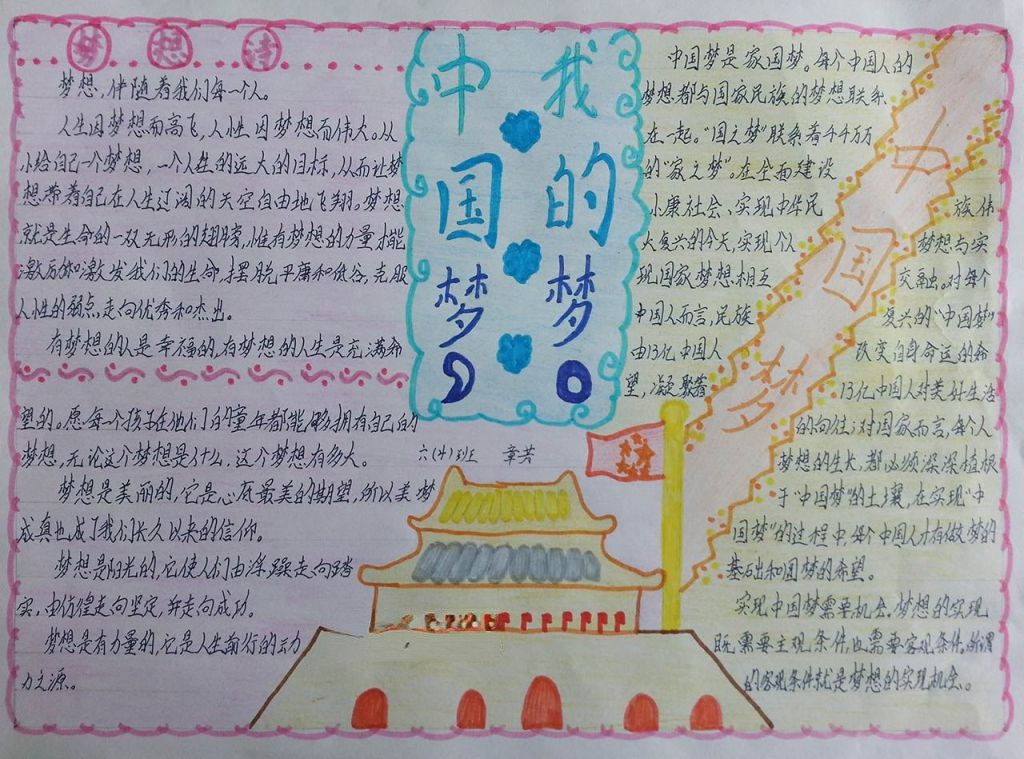 梦想诗
梦想,伴随着我们每一个人。
人生因梦想而高飞,人性因梦想而伟大。从
小给自己一个梦想,一个人生的远大的目标,从而让梦
想带着自己在人生辽阔的天空自由地飞翔。梦想
就是生命的一双无形的翅膀,惟有梦想的力量才能
激发我们的生命,摆脱平庸和低谷,克服
人性的弱点,走向优秀和杰出。
有梦想的人是幸福的,有梦想的人生是充满希
望的。愿每一个孩子在他们的童年都能够拥有自己的
梦想,无论这个梦想是什么,这个梦想有多大。
梦想是美丽的,它是心底最美的期望,所以美梦
成真也成了我们长久以来的信仰。
梦想是阳光的,它使人们由浮躁走向踏
实,由彷徨走向坚定,并走向成功。
梦想是有力量的,它是人生前行的动力
力之源。
我的梦
中国梦
六(4)班 章芸
中国梦是家国梦。每个中国人的
梦想都与国家民族的梦想联系
在一起。“国之梦”联系着千千万万
的“家之梦”。在全面建设
小康社会、实现中华民族伟
大复兴的今天,实现个人梦想与实
现国家梦想相互交融。对每个
中国人而言,民族复兴的“中国梦”
由13亿中国人改变自身命运的希
望,凝聚着13亿中国人对美好生活
的向往;对国家而言,每个人
梦想的生长,都必须深深植根
于“中国梦”的土壤,在实现“中
国梦”的过程中,每个中国人才有做梦的
基石出和圆梦的希望。
实现中国梦需要机会。梦想的实现
既需要主观条件,也需要客观条件,所谓
的客观条件就是梦想的实现机会。
中国梦